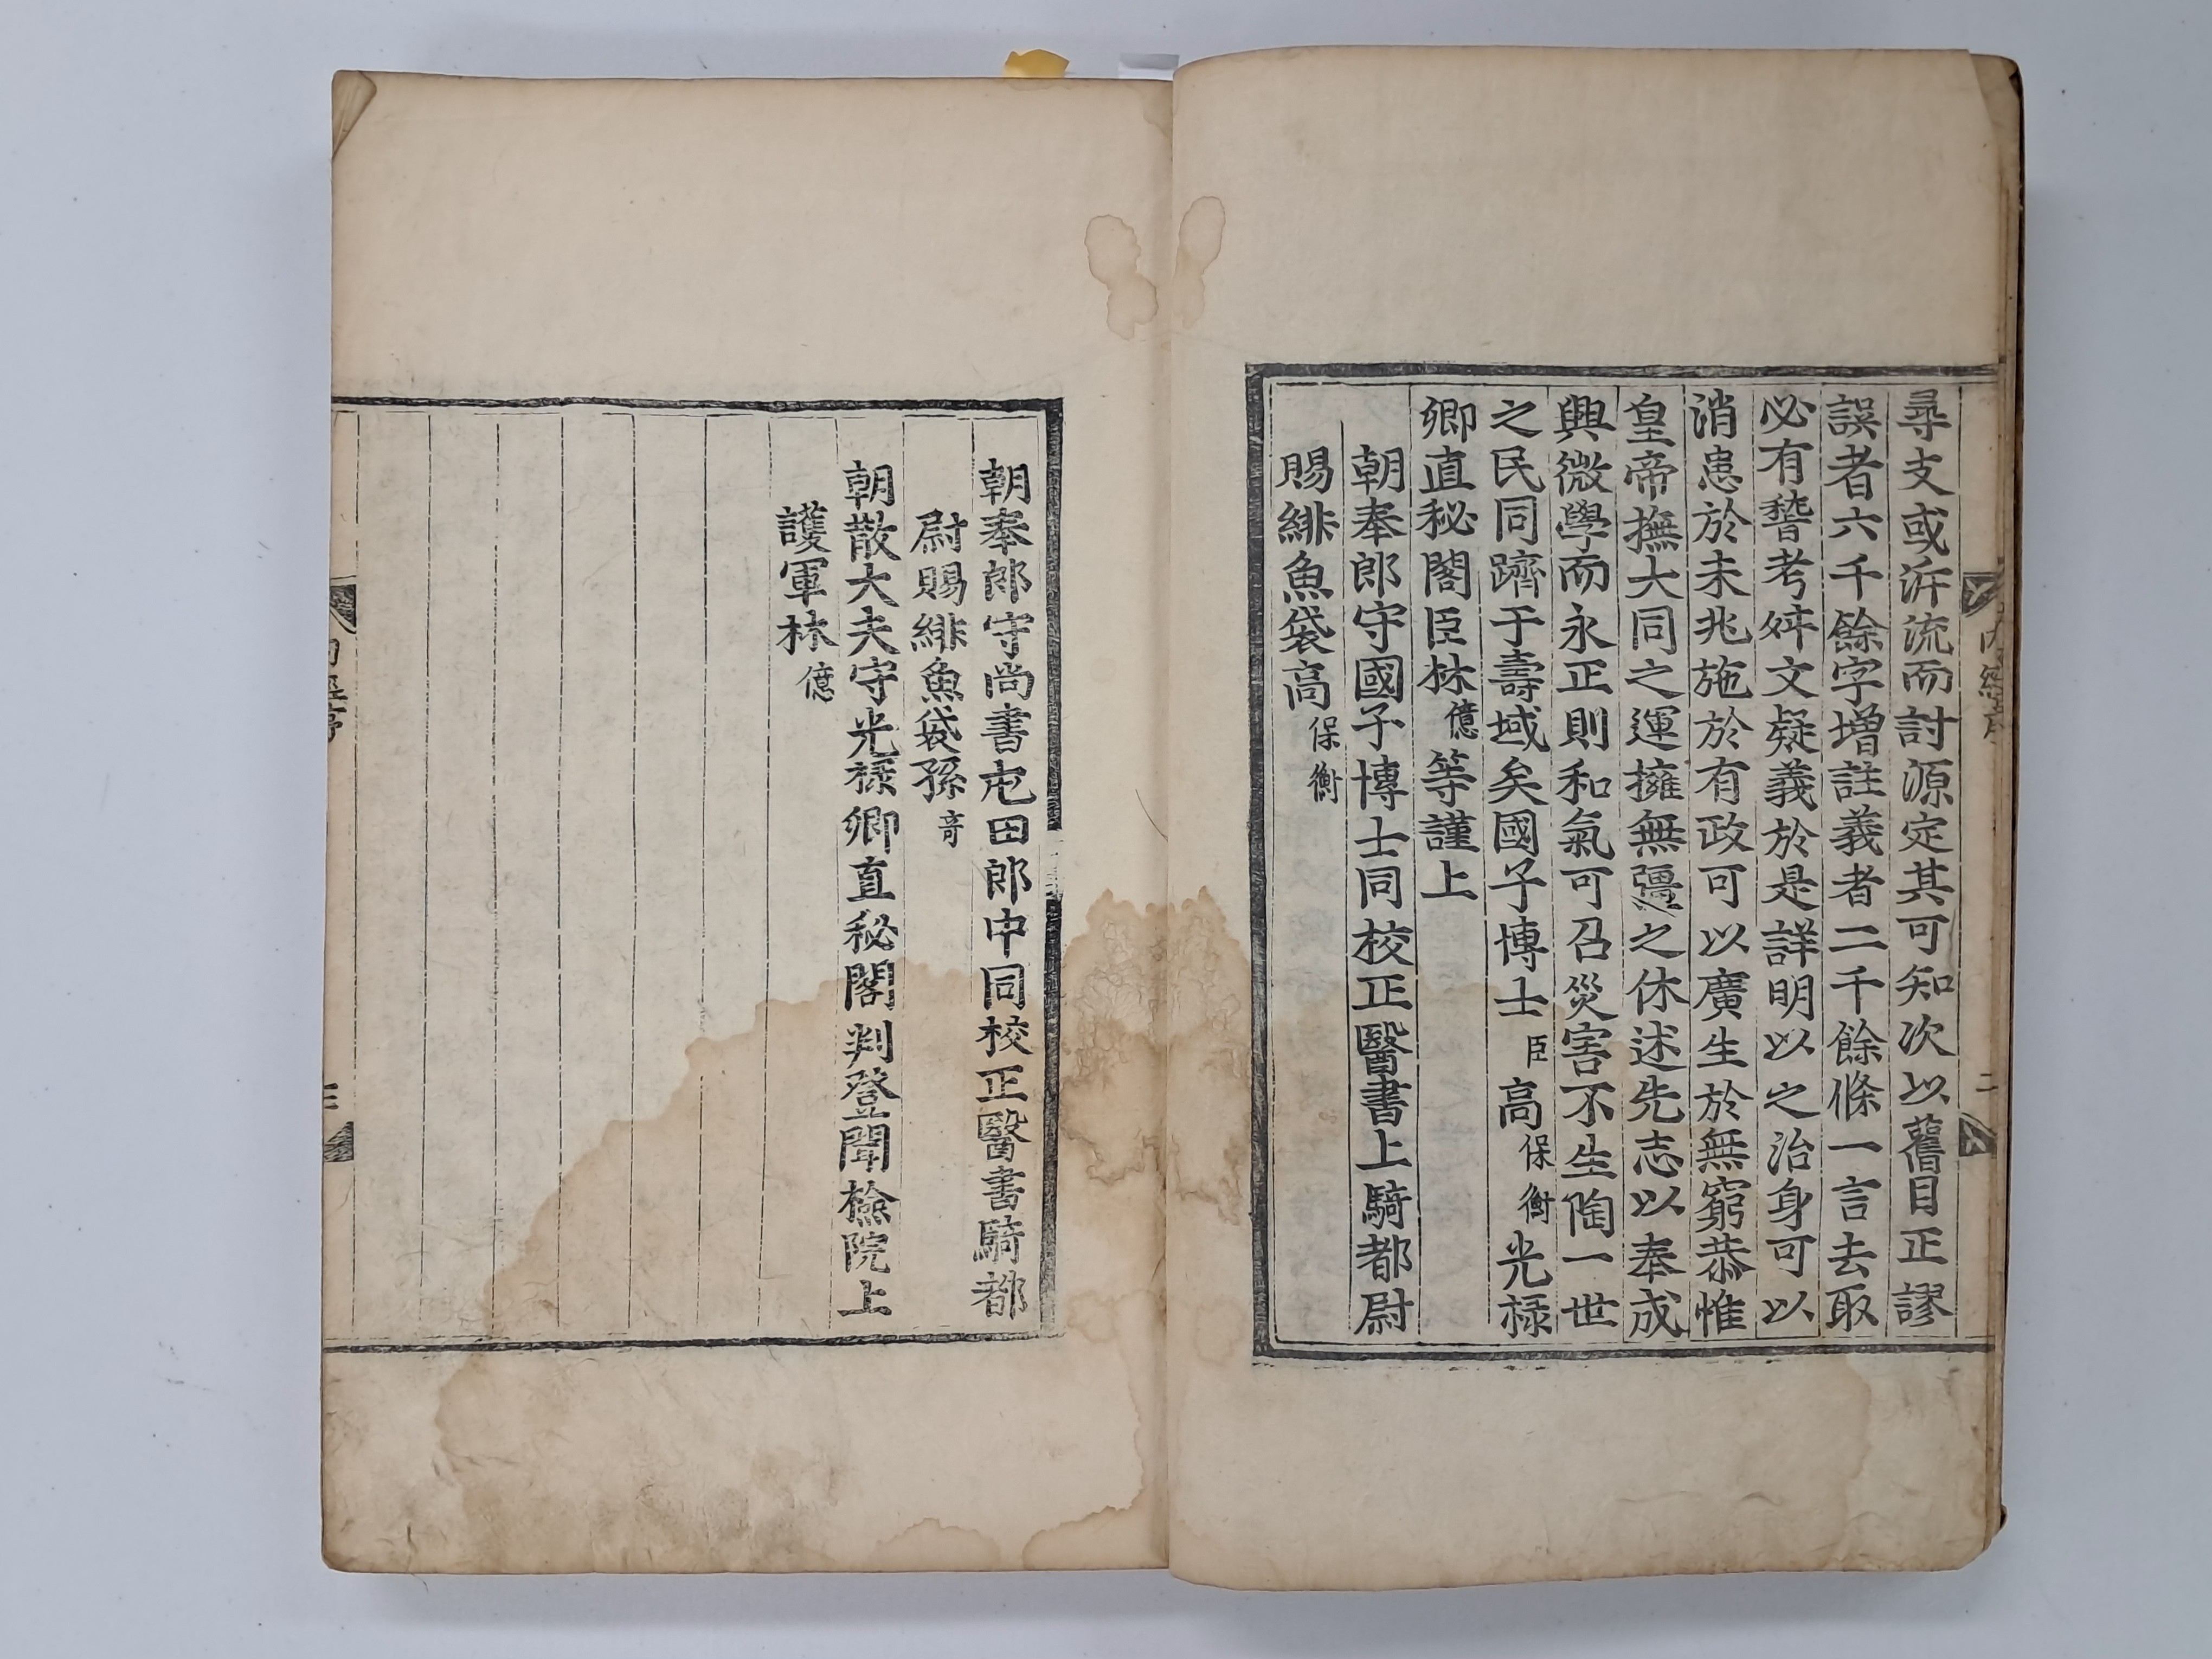 尋支或泝流而討源定其可知次以舊目正謬
誤者六千餘字增註義者二千餘條一言去取
必有稽考舛文疑義於是詳明以之治身可以
消患於未兆施於有政可以廣生於無窮恭惟
皇帝撫大同之運擁無疆之休述先志以奉成
興微學而永正則和氣可召災害不生陶一世
之民同躋于壽域矣國子博士臣高保衡光祿
卿直秘閣臣林億等謹上
朝奉郎守國子博士同校正醫書上騎都尉
賜緋魚袋高保衡
朝奉郎守尚書屯田郎中同校正醫書騎都
尉賜緋魚袋孫奇
朝散大夫守光祿卿直秘閣判登聞檢院上
護軍林億